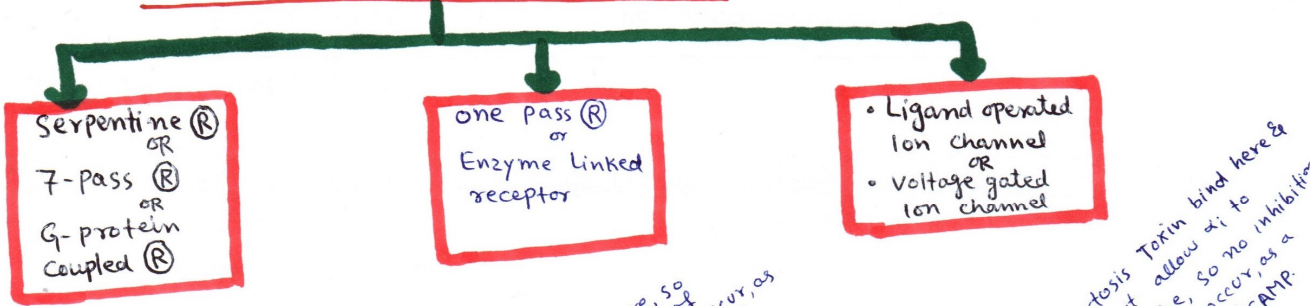 Serpentine Ⓡ
OR
7-pass Ⓡ
OR
G-protein
coupled Ⓡ
one pass Ⓡ
or
Enzyme Linked
receptor
• Ligand operated
Ion channel
OR
• Voltage gated
Ion channel
e, so
of
cur, as
tosis Toxin bind here &
t allow αi to
e, so no inhibition
ccur, as a
cAMP.